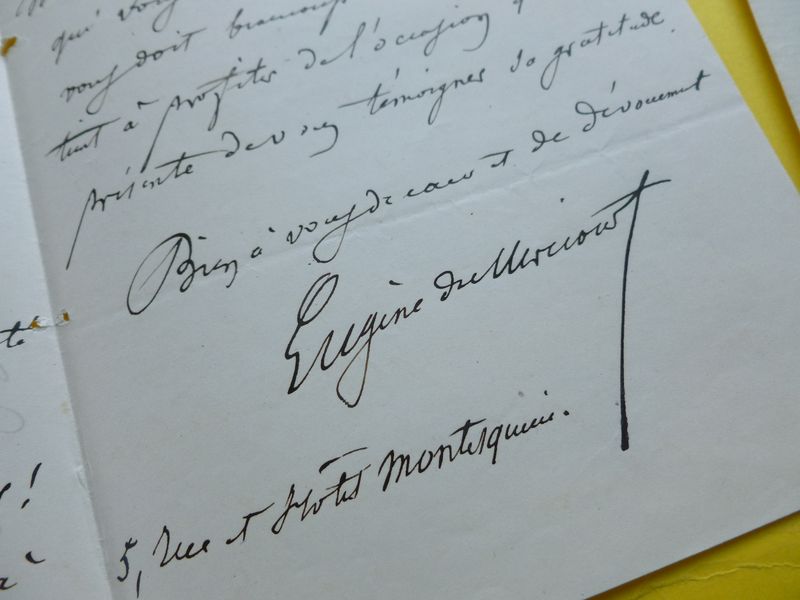 qui vous
vous doit beaucoup
tient à profiter de l'occasion q
présente devous témoigner sa gratitude.
Bien à vous de cœur et de dévouement
Eugène de Mericourt
5, rue et Hôtel Montesquieu.
té
!
à